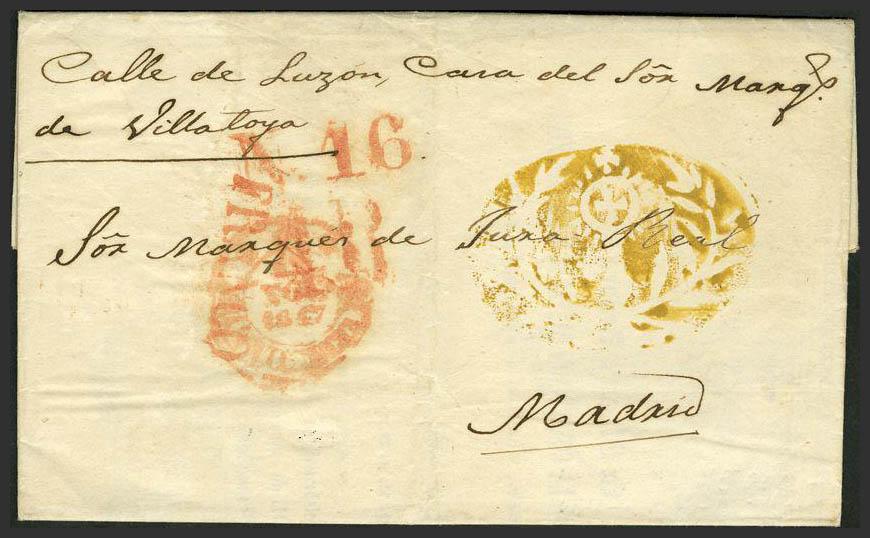 Calle de Luzón, Casa del Sõr Marqs.
de Villatoya
16
Sõr Marqués de Jura-Real
Madrid